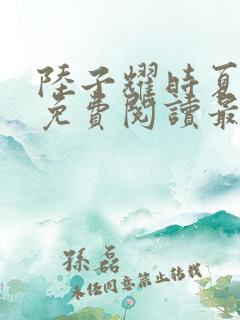 陸子耀時夏
免費閱讀最
孫磊
未經同意禁止轉載